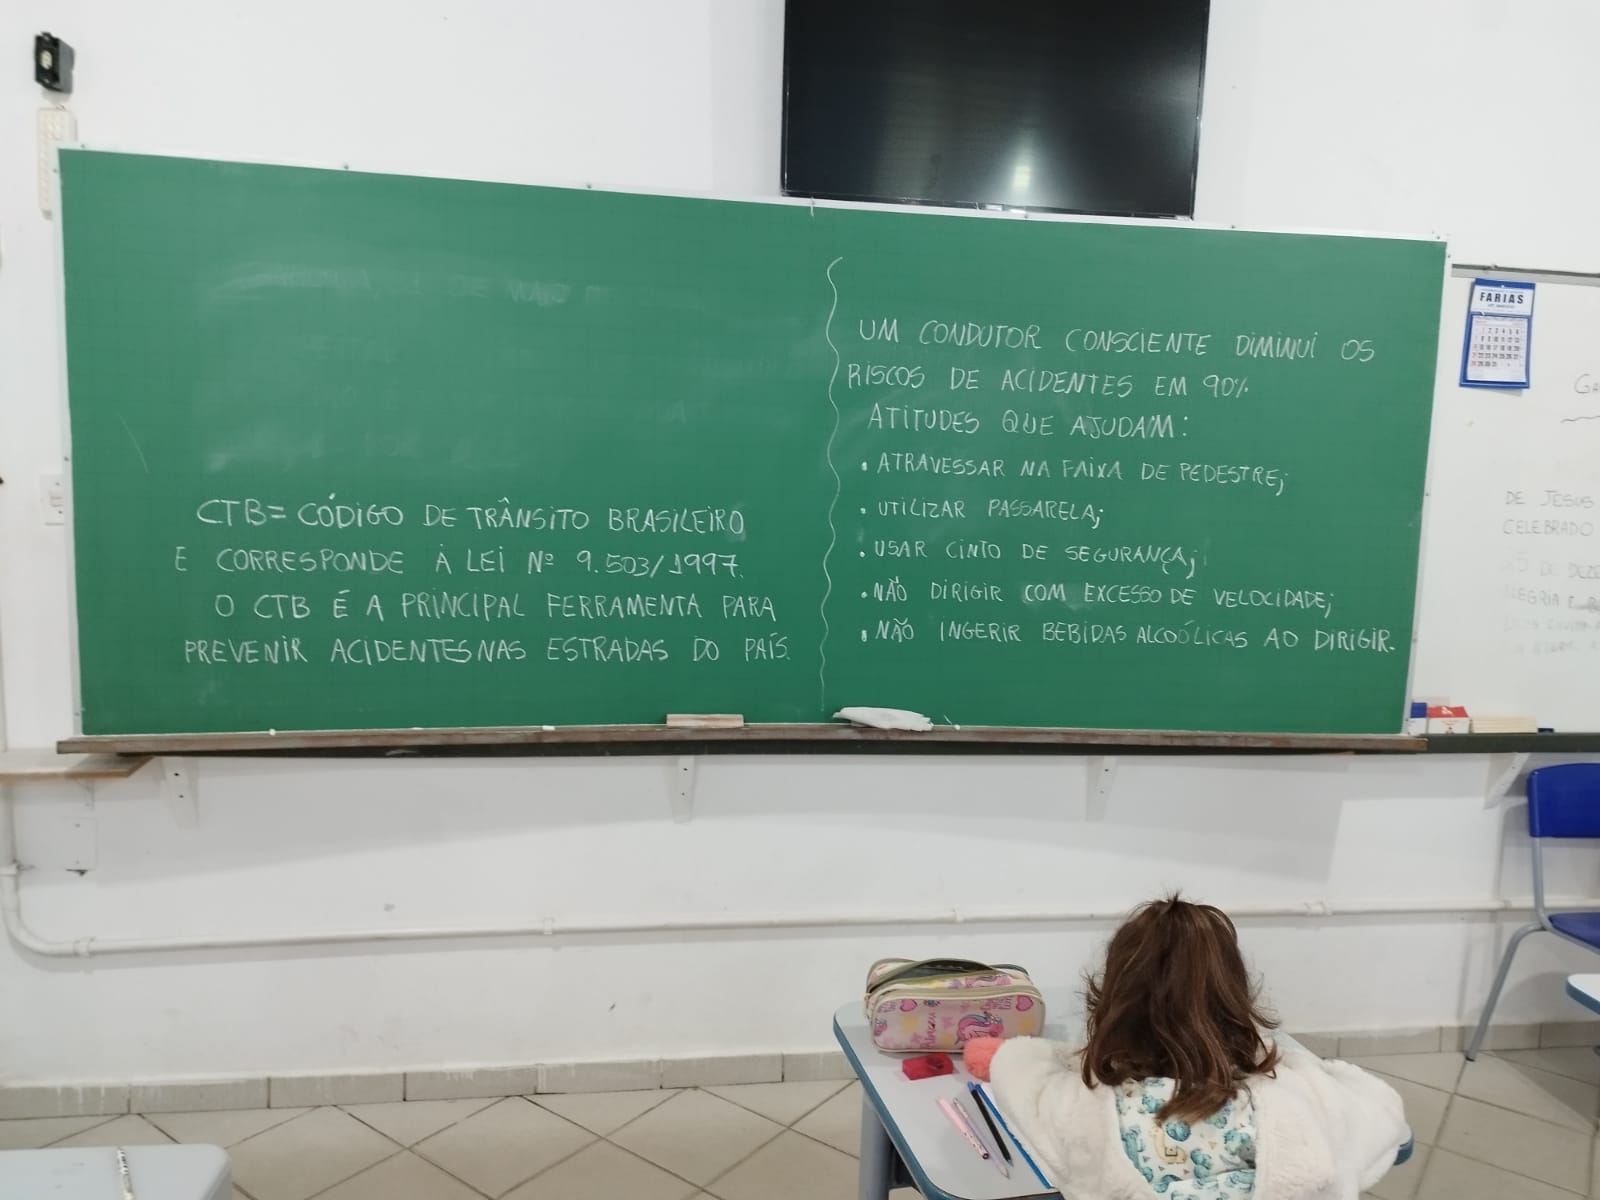 CTB= CÓDIGO DE TRÂNSITO BRASILEIRO
E CORRESPONDE À LEI Nº 9.503/1997.
O CTB É A PRINCIPAL FERRAMENTA PARA
PREVENIR ACIDENTES NAS ESTRADAS DO PAÍS.
UM CONDUTOR CONSCIENTE DIMINUI OS
RISCOS DE ACIDENTES EM 90%
ATITUDES QUE AJUDAM:
• ATRAVESSAR NA FAIXA DE PEDESTRE;
• UTILIZAR PASSARELA;
• USAR CINTO DE SEGURANÇA;
• NÃO DIRIGIR COM EXCESSO DE VELOCIDADE;
• NÃO INGERIR BEBIDAS ALCOÓLICAS AO DIRIGIR.
FARIAS
DE JESUS
CELEBRADO